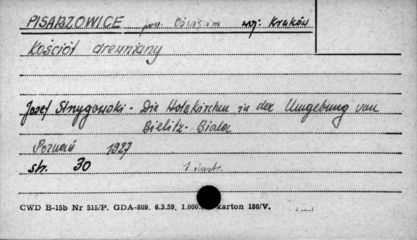 PISARZOWICE pow. Oświęcim woj. Kraków
Kościół drewniany
Josef Strzygowski - Die Holzkirchen in der Umgebung von
Bielitz-Biala
Poznań 1927
str. 30
CWD B-15b Nr 515/P. GDA-809. 6.3.59. 1.000. karton 180/V.